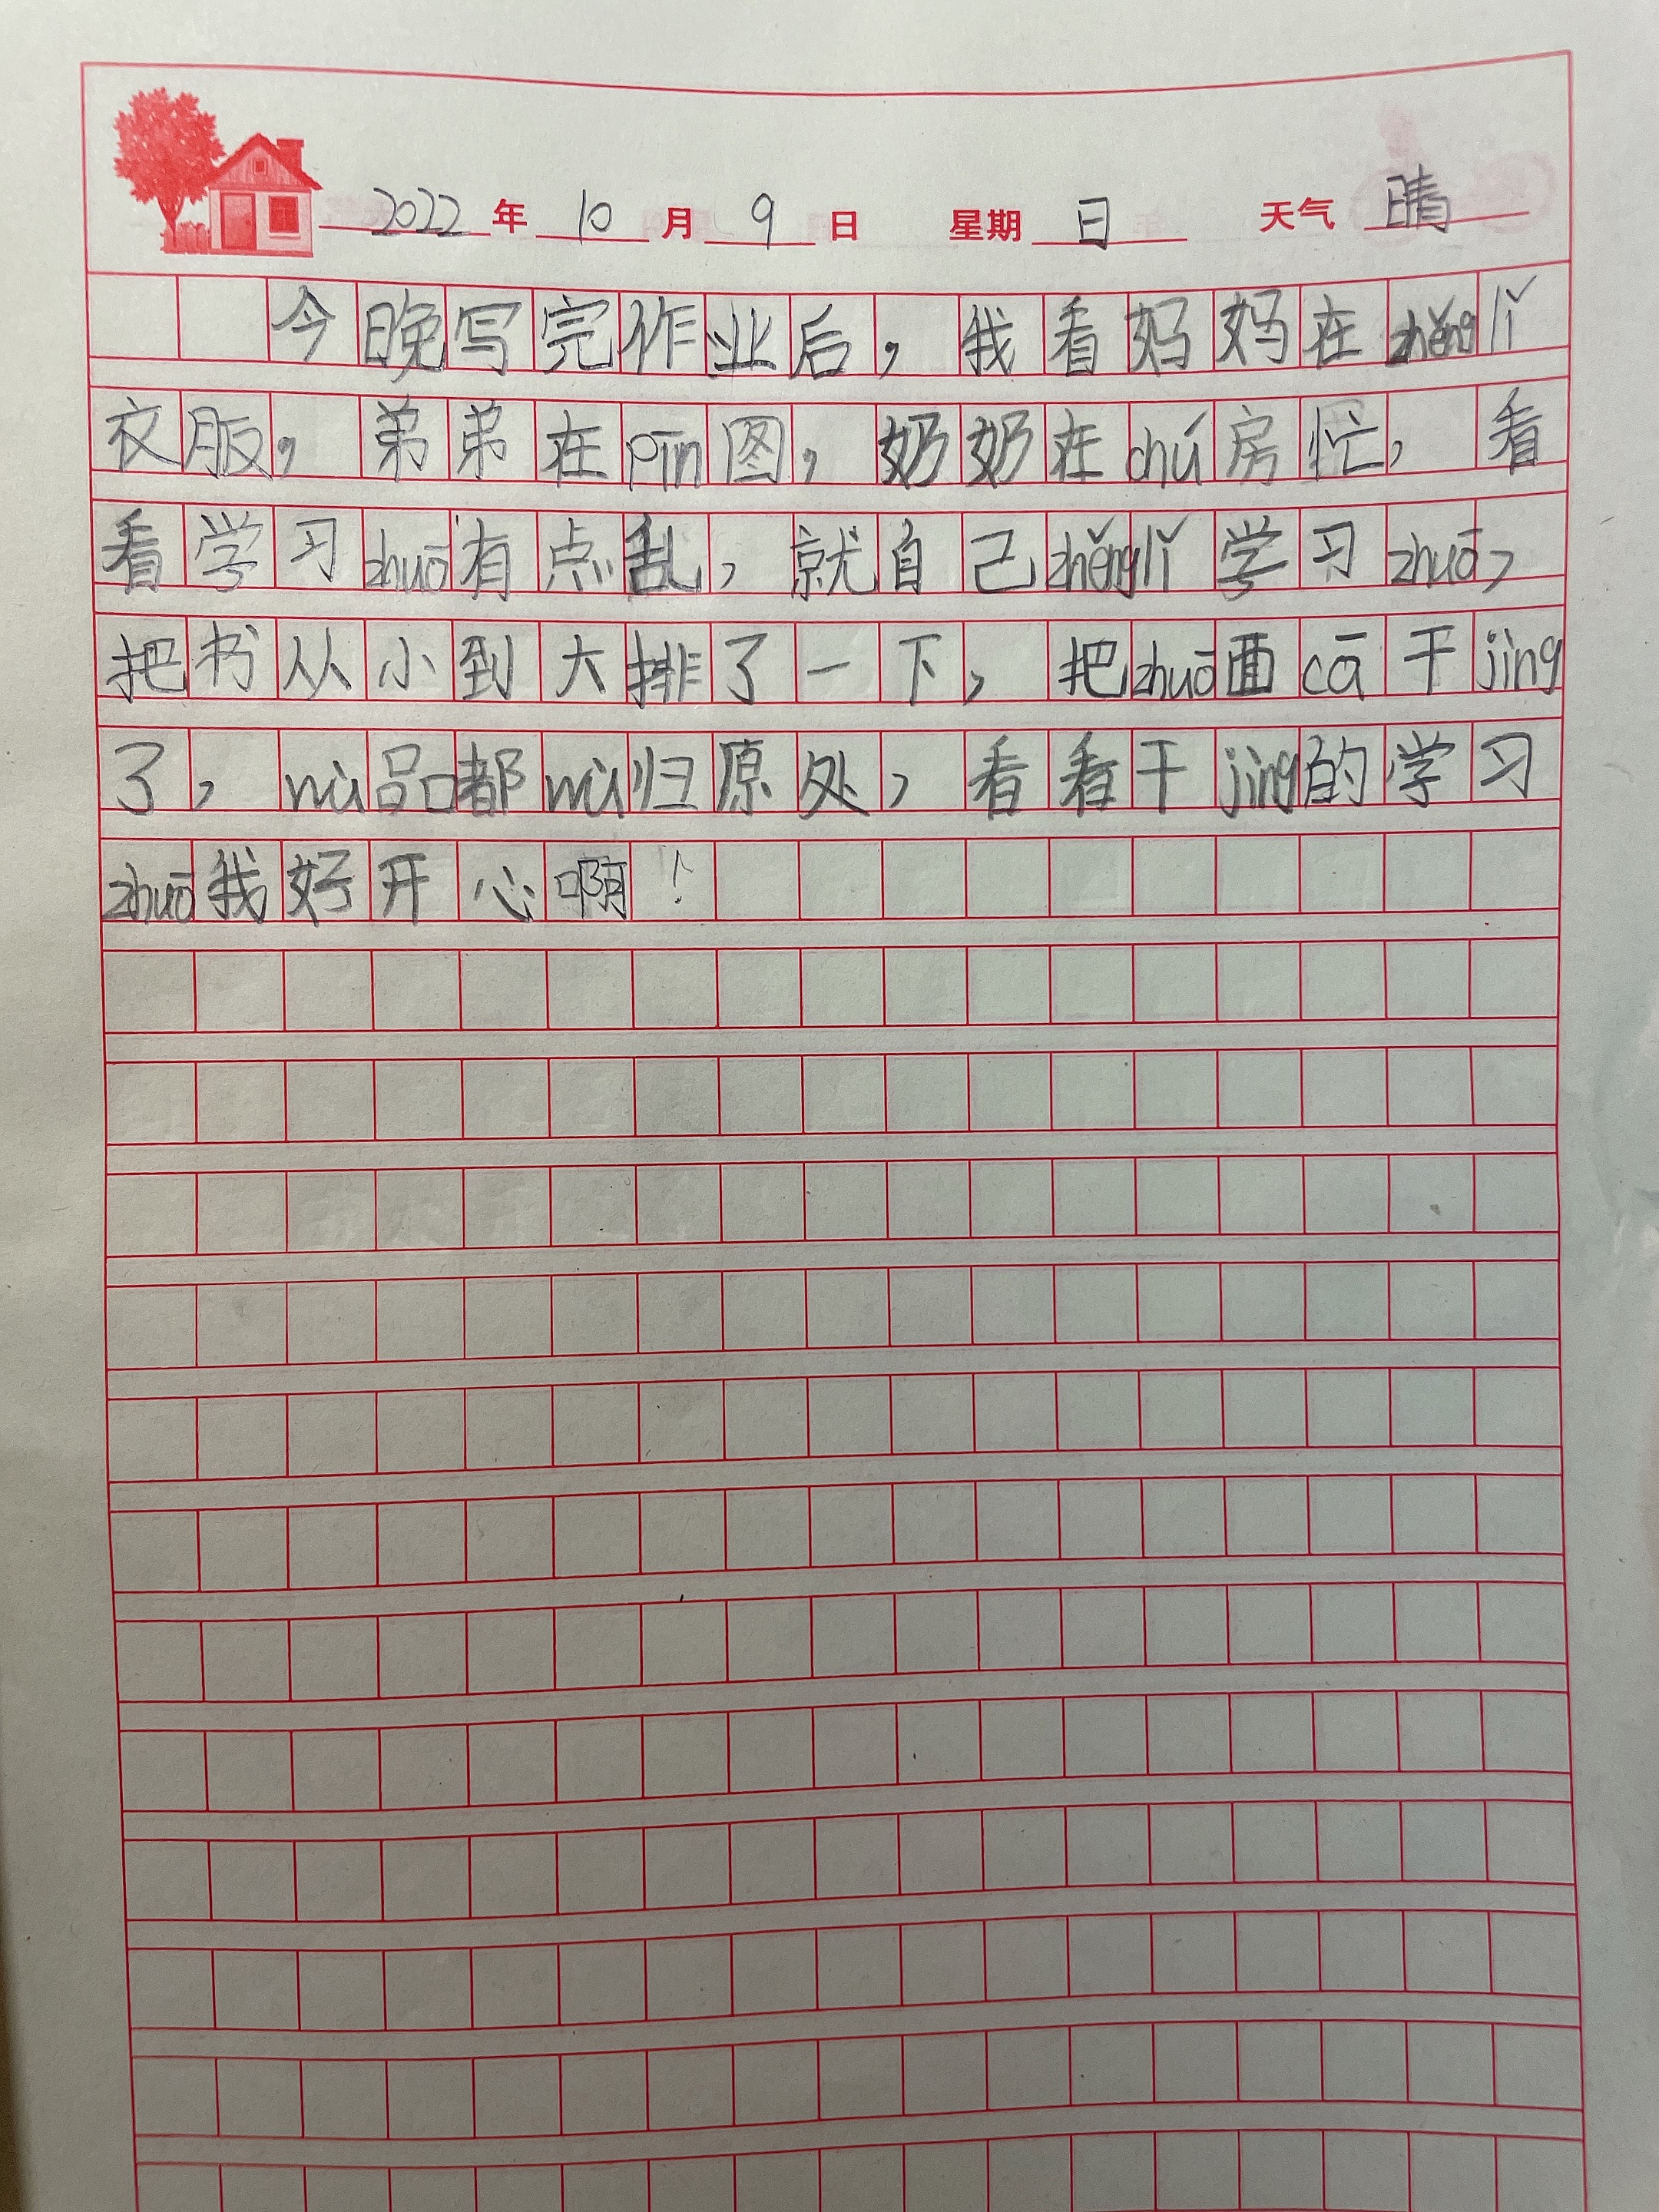 2022年10月9日 星期日 天气晴
今晚写完作业后，我看妈妈在zhěnglǐ
衣服，弟弟在pīn图，奶奶在chú房忙，看
看学习zhuō有点乱，就自己zhěnglǐ学习zhuō，
把书从小到大排了一下，把zhuō面cā干jìng
了，wù品都wù归原处，看看干jìng的学习
zhuō我好开心啊！